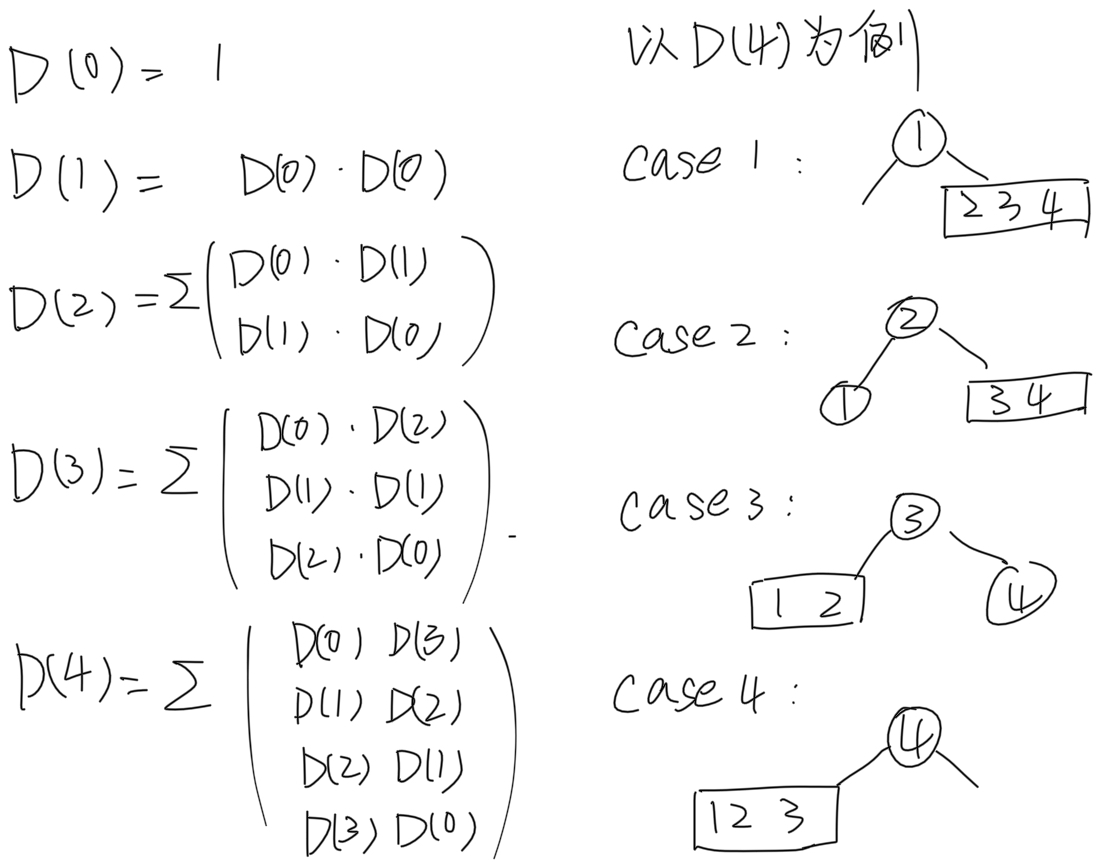 D(0) = 1
D(1) = D(0) · D(0)
D(2) = Σ ( D(0) · D(1)
D(1) · D(0) )
D(3) = Σ ( D(0) · D(2)
D(1) · D(1)
D(2) · D(0) ) .
D(4) = Σ ( D(0) D(3)
D(1) D(2)
D(2) D(1)
D(3) D(0) )
以 D(4) 为例
case 1 :
1
2 3 4
case 2 :
2
1
3 4
case 3 :
3
1 2
4
case 4 :
4
1 2 3